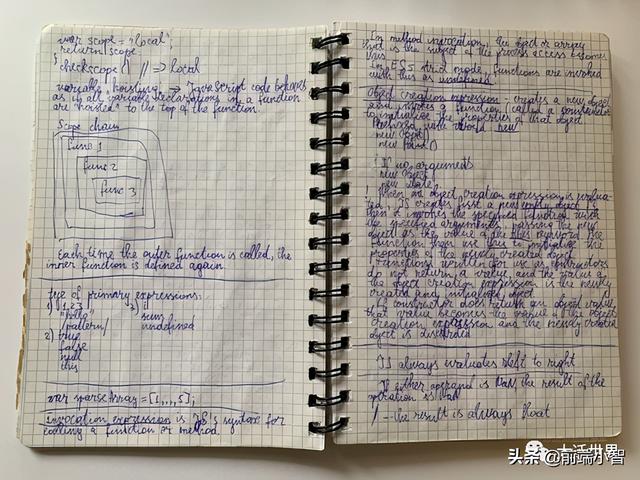 var scope = "local";
return scope
}
checkscope() // => local
variable hoisting → JavaScript code behaves
as if all variable declarations in a function
are "hoisted" to the top of the function
Scope chain
func 1
func 2
func 3
Each time the outer function is called, the
inner function is defined again
type of primary expressions:
1) 1.23
"hello"
/pattern/
2) true
false
null
this
3)
sum
undefined
var sparseArray = [1,,,,5];
Invocation expression is JS's syntax for
calling a function or method.
In method invocation, the object or array
that is the subject of the process access becomes
this
In ES5 strict mode, functions are invoked
with this as undefined
Object creation expression - creates a new object
and invokes a function (called a constructor)
to initialize the properties of that object
with new
new
new
! If no arguments
new Object
new Date
! When an object creation expression is evalua-
ted, JS creates first a new empty object
then it invokes the specified function with
the specified arguments, passing the new
object as the value of the this keyword. The
function then use this to initialize the
properties of the newly created object
Functions written for use as constructors
do not return a value, and the value of
the object creation expression is the newly
created and initialized object
If a constructor does return an object value,
that value becomes the value of the object
creation expression and the newly created
object is discarded
JS always evaluates left to right
If either operand is NaN the result of the
operation is NaN
/ - the result is always float
大迁世界
头条 @前端小智